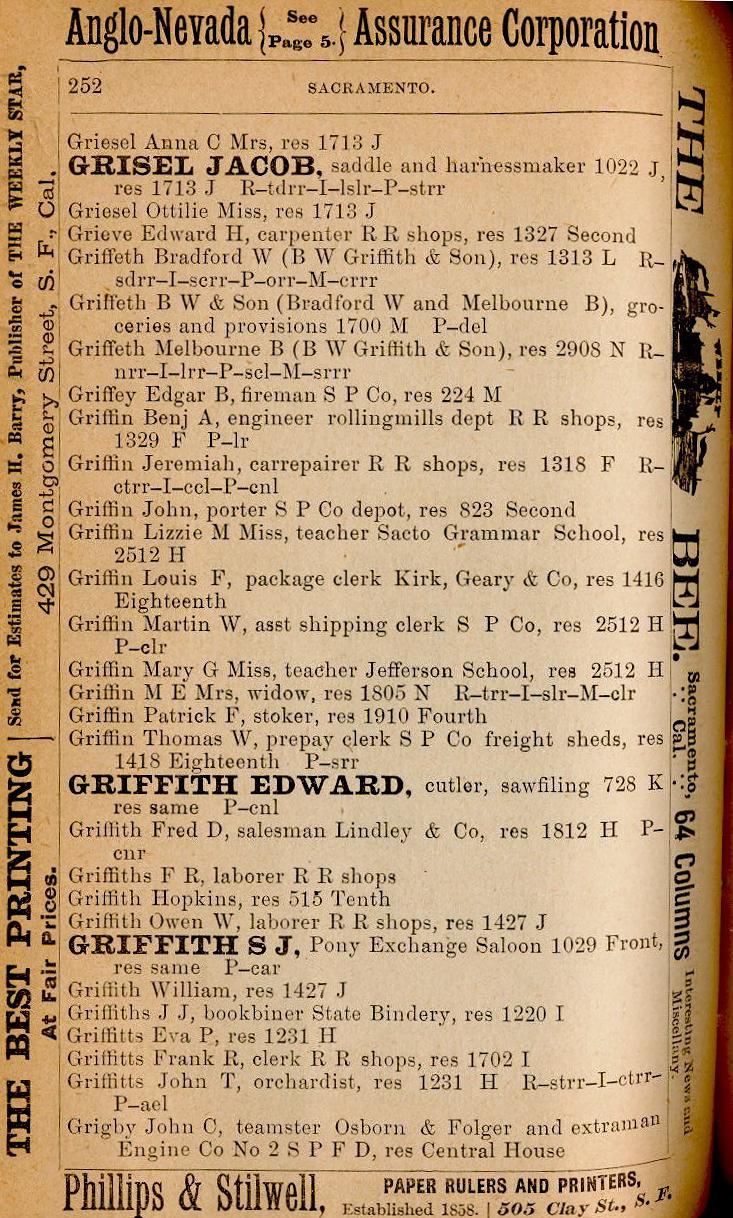 Anglo-Nevada { See Page 5. } Assurance Corporation
252 SACRAMENTO.
Griesel Anna C Mrs, res 1713 J
GRISEL JACOB, saddle and harnessmaker 1022 J,
res 1713 J R–tdrr–I–lslr–P–strr
Griesel Ottilie Miss, res 1713 J
Grieve Edward H, carpenter R R shops, res 1327 Second
Griffeth Bradford W (B W Griffith & Son), res 1313 L R–
sdrr–I–scrr–P–orr–M–crrr
Griffeth B W & Son (Bradford W and Melbourne B), gro-
ceries and provisions 1700 M P–del
Griffeth Melbourne B (B W Griffith & Son), res 2908 N R–
nrr–I–lrr–P–scl–M–srrr
Griffey Edgar B, fireman S P Co, res 224 M
Griffin Benj A, engineer rollingmills dept R R shops, res
1329 F P–lr
Griffin Jeremiah, carrepairer R R shops, res 1318 F R–
ctrr–I–ccl–P–cnl
Griffin John, porter S P Co depot, res 823 Second
Griffin Lizzie M Miss, teacher Sacto Grammar School, res
2512 H
Griffin Louis F, package clerk Kirk, Geary & Co, res 1416
Eighteenth
Griffin Martin W, asst shipping clerk S P Co, res 2512 H
P–clr
Griffin Mary G Miss, teacher Jefferson School, res 2512 H
Griffin M E Mrs, widow, res 1805 N R–trr–I–slr–M–clr
Griffin Patrick F, stoker, res 1910 Fourth
Griffin Thomas W, prepay clerk S P Co freight sheds, res
1418 Eighteenth P–srr
GRIFFITH EDWARD, cutler, sawfiling 728 K
res same P–cnl
Griffith Fred D, salesman Lindley & Co, res 1812 H P–
cnr
Griffiths F R, laborer R R shops
Griffith Hopkins, res 515 Tenth
Griffith Owen W, laborer R R shops, res 1427 J
GRIFFITH S J, Pony Exchange Saloon 1029 Front,
res same P–car
Griffith William, res 1427 J
Griffiths J J, bookbiner State Bindery, res 1220 I
Griffitts Eva P, res 1231 H
Griffitts Frank R, clerk R R shops, res 1702 I
Griffitts John T, orchardist, res 1231 H R–strr–I–ctrr–
P–ael
Grigby John C, teamster Osborn & Folger and extraman
Engine Co No 2 S P F D, res Central House
Phillips & Stilwell, PAPER RULERS AND PRINTERS,
Established 1858. | 505 Clay St., S. F.
THE BEST PRINTING | Send for Estimates to James H. Barry, Publisher of THE WEEKLY STAR,
At Fair Prices. 429 Montgomery Street, S. F., Cal.
THE WEEKLY BEE. Sacramento, Cal. 64 Columns Interesting News and Miscellany.